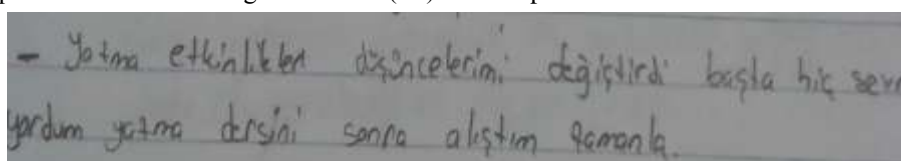 - Yazma etkinlikleri düşüncelerimi değiştirdi başta hiç sevm
yordum yazma dersini sonra alıştım zamanla.